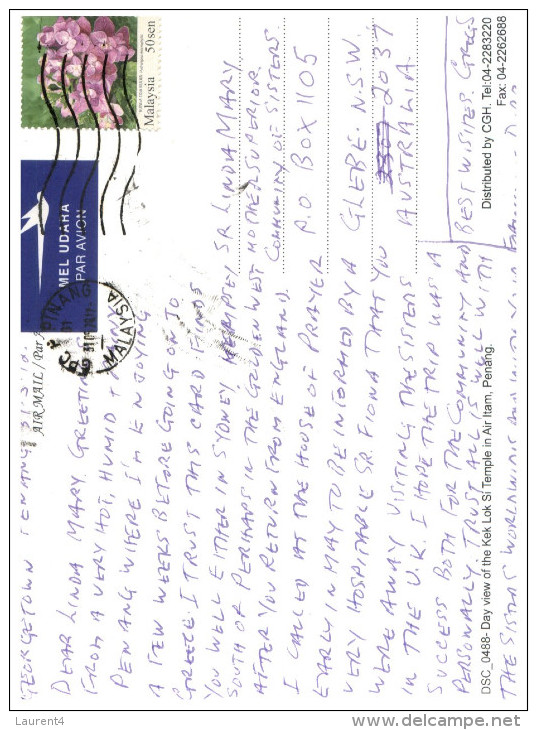 GEORGETOWN PENANG
AIR MAIL / Par
DEAR LINDA MARY. GREETINGS
FROM A VERY HOT, HUMID
PENANG WHERE I'M ENJOYING
A FEW WEEKS BEFORE GOING ON TO
GREECE. I TRUST THIS CARD FINDS
YOU WELL EITHER IN SYDNEY, KEMPSEY
SOUTH OR PERHAPS IN THE GOLDEN WEST
AFTER YOU RETURN FROM ENGLAND.
I CALLED AT THE HOUSE OF PRAYER
EARLY IN MAY TO BE INFORMED BY A
VERY HOSPITABLE SR. FIONA THAT YOU
WERE AWAY VISITING THE SISTERS
IN THE U.K. I HOPE THE TRIP WAS A
SUCCESS BOTH FOR THE COMMUNITY AND
PERSONALLY. TRUST ALL IS WELL WITH
THE SISTERS WORLDWIDE
BEST WISHES. GREGG
SR LINDA MARY
MOTHER SUPERIOR
COMMUNITY OF SISTERS
P.O BOX 1105
GLEBE. N.S.W.
2037
AUSTRALIA
MEL UDARA
PAR AVION
Malaysia 50sen
GPO PINANG
MALAYSIA
DSC_0488- Day view of the Kek Lok Si Temple in Air Itam, Penang.
Distributed by CGH. Tel:04-2283220
Fax: 04-2262688
Laurent4
www.delcampe.net